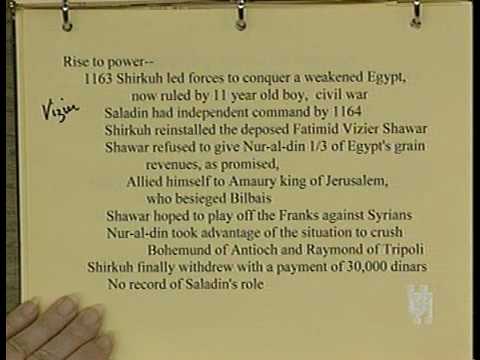 Rise to power--
1163 Shirkuh led forces to conquer a weakened Egypt,
now ruled by 11 year old boy, civil war
Vizier
Saladin had independent command by 1164
Shirkuh reinstalled the deposed Fatimid Vizier Shawar
Shawar refused to give Nur-al-din 1/3 of Egypt's grain
revenues, as promised,
Allied himself to Amaury king of Jerusalem,
who besieged Bilbais
Shawar hoped to play off the Franks against Syrians
Nur-al-din took advantage of the situation to crush
Bohemund of Antioch and Raymond of Tripoli
Shirkuh finally withdrew with a payment of 30,000 dinars
No record of Saladin's role